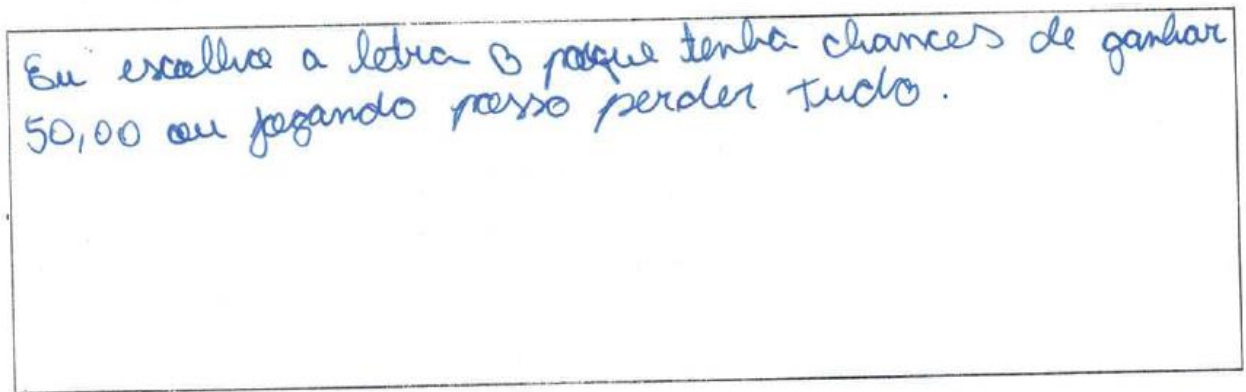 Eu escolho a letra B porque tenho chances de ganhar
50,00 ou jogando posso perder tudo.